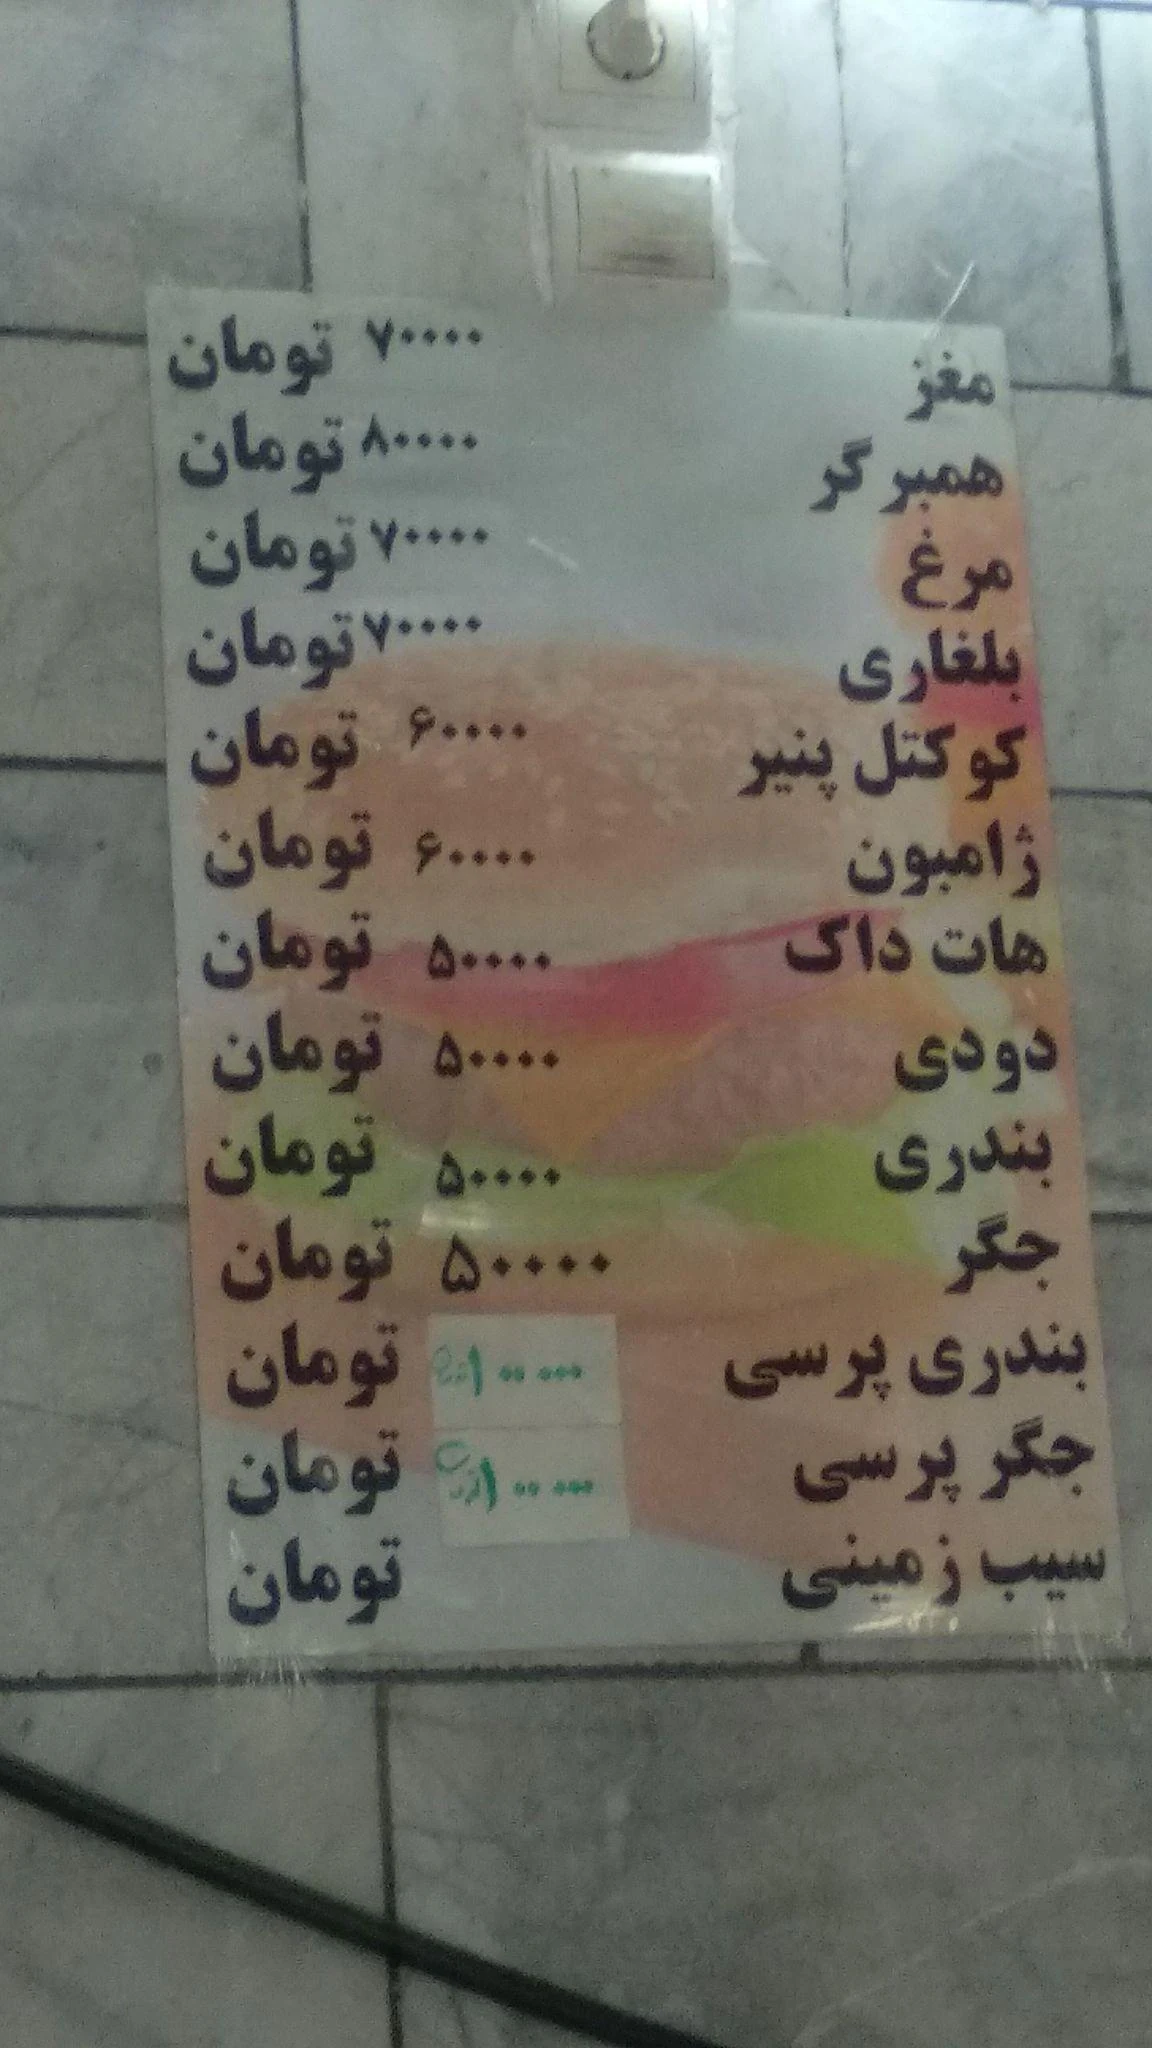 مغز ۷۰۰۰۰ تومان
همبرگر ۸۰۰۰۰ تومان
مرغ ۷۰۰۰۰ تومان
بلغاری ۷۰۰۰۰ تومان
کوکتل پنیر ۶۰۰۰۰ تومان
ژامبون ۶۰۰۰۰ تومان
هات داک ۵۰۰۰۰ تومان
دودی ۵۰۰۰۰ تومان
بندری ۵۰۰۰۰ تومان
جگر ۵۰۰۰۰ تومان
بندری پرسی ۱۰۰ ۰۰۰ تومان
جگر پرسی ۱۰۰ ۰۰۰ تومان
سیب زمینی تومان